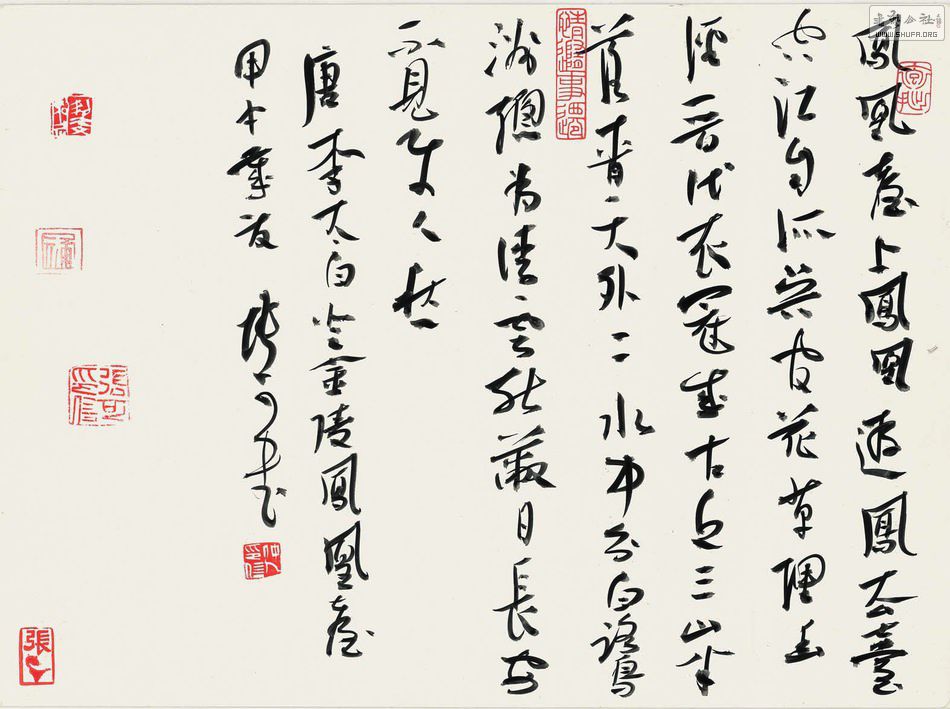 鳳凰臺上鳳凰遊鳳去臺
空江自流吳宮花草埋幽
徑晉代衣冠成古丘三山半
落青天外二水中分白鷺
洲總為浮雲能蔽日長安
不見使人愁
唐李太白登金陵鳳凰臺
甲午 張可書
張
WWW.SHUFA.ORG